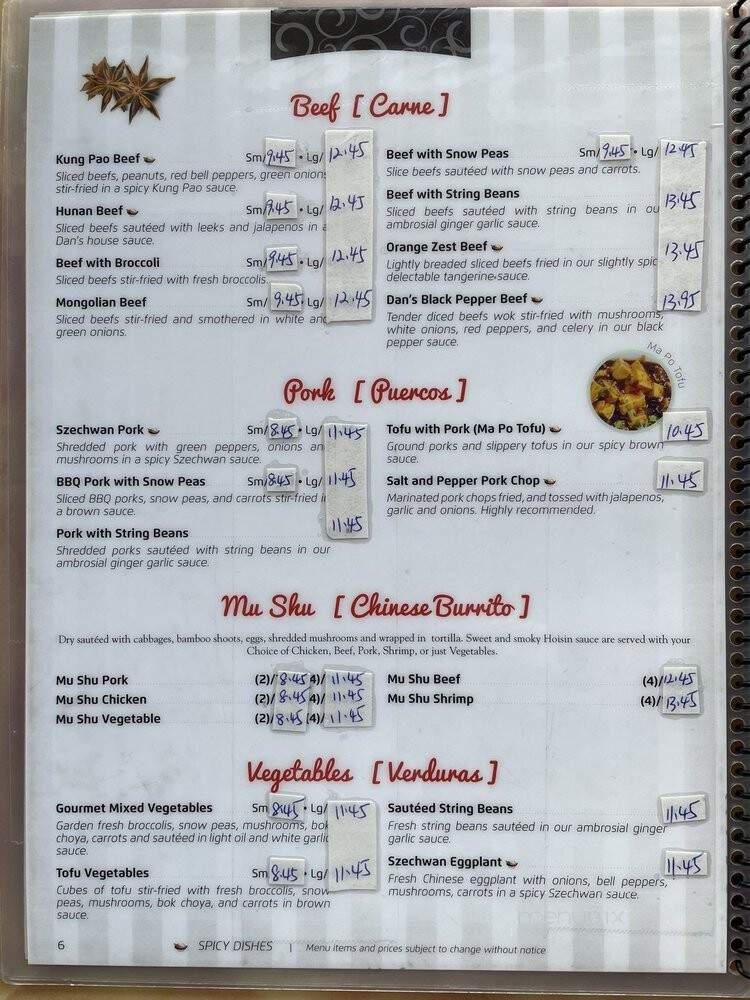 Beef [ Carne ]
Kung Pao Beef Sm/ 9.45 • Lg/ 12.45
Sliced beefs, peanuts, red bell peppers, green onions
stir-fried in a spicy Kung Pao sauce.
Hunan Beef Sm/ 9.45 • Lg/ 12.45
Sliced beefs sautéed with leeks and jalapenos in a
Dan's house sauce.
Beef with Broccoli Sm/ 9.45 • Lg/ 12.45
Sliced beefs stir-fried with fresh broccolis.
Mongolian Beef Sm/ 9.45 Lg/ 12.45
Sliced beefs stir-fried and smothered in white and
green onions.
Beef with Snow Peas Sm/ 9.45 • Lg/ 12.45
Slice beefs sautéed with snow peas and carrots.
Beef with String Beans 13.45
Sliced beefs sautéed with string beans in ou
ambrosial ginger garlic sauce.
Orange Zest Beef 13.45
Lightly breaded sliced beefs fried in our slightly spic
delectable tangerine sauce.
Dan's Black Pepper Beef 13.95
Tender diced beefs wok stir-fried with mushrooms,
white onions, red peppers, and celery in our black
pepper sauce.
Ma Po Tofu
Pork [ Puercos ]
Szechwan Pork Sm/ 8.45 • Lg/ 11.45
Shredded pork with green peppers, onions an
mushrooms in a spicy Szechwan sauce.
BBQ Pork with Snow Peas Sm/ 8.45 • Lg/ 11.45
Sliced BBQ porks, snow peas, and carrots stir-fried i
a brown sauce.
Pork with String Beans 11.45
Shredded porks sautéed with string beans in our
ambrosial ginger garlic sauce.
Tofu with Pork (Ma Po Tofu) 10.45
Ground porks and slippery tofus in our spicy brown
sauce.
Salt and Pepper Pork Chop 11.45
Marinated pork chops fried, and tossed with jalapenos,
garlic and onions. Highly recommended.
Mu Shu [ Chinese Burrito ]
Dry sautéed with cabbages, bamboo shoots, eggs, shredded mushrooms and wrapped in tortilla. Sweet and smoky Hoisin sauce are served with your
Choice of Chicken, Beef, Pork, Shrimp, or just Vegetables.
Mu Shu Pork (2)/ 8.45 4)/ 11.45
Mu Shu Chicken (2)/ 8.45 4)/ 11.45
Mu Shu Vegetable (2)/ 8.45 (4)/ 11.45
Mu Shu Beef (4)/ 12.45
Mu Shu Shrimp (4)/ 13.45
Vegetables [ Verduras ]
Gourmet Mixed Vegetables Sm 8.45 • Lg/ 11.45
Garden fresh broccolis, snow peas, mushrooms, bok
choya, carrots and sautéed in light oil and white garlic
sauce.
Tofu Vegetables Sm 8.45 • Lg/ 11.45
Cubes of tofu stir-fried with fresh broccolis, snow
peas, mushrooms, bok choya, and carrots in brown
sauce.
Sautéed String Beans 11.45
Fresh string beans sautéed in our ambrosial ginger
garlic sauce.
Szechwan Eggplant 11.45
Fresh Chinese eggplant with onions, bell peppers,
mushrooms, carrots in a spicy Szechwan sauce.
6 SPICY DISHES | Menu items and prices subject to change without notice